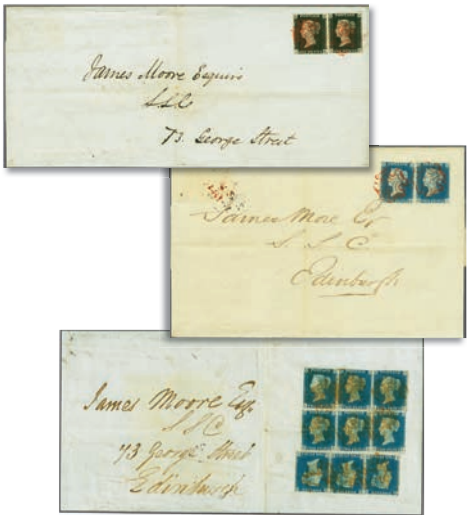 James Moore Esquire
S.S.C
73. George Street
James More Esqr
S. S. C.
Edinburgh
James Moore Esqr
S S C
73 George Street
Edinburgh